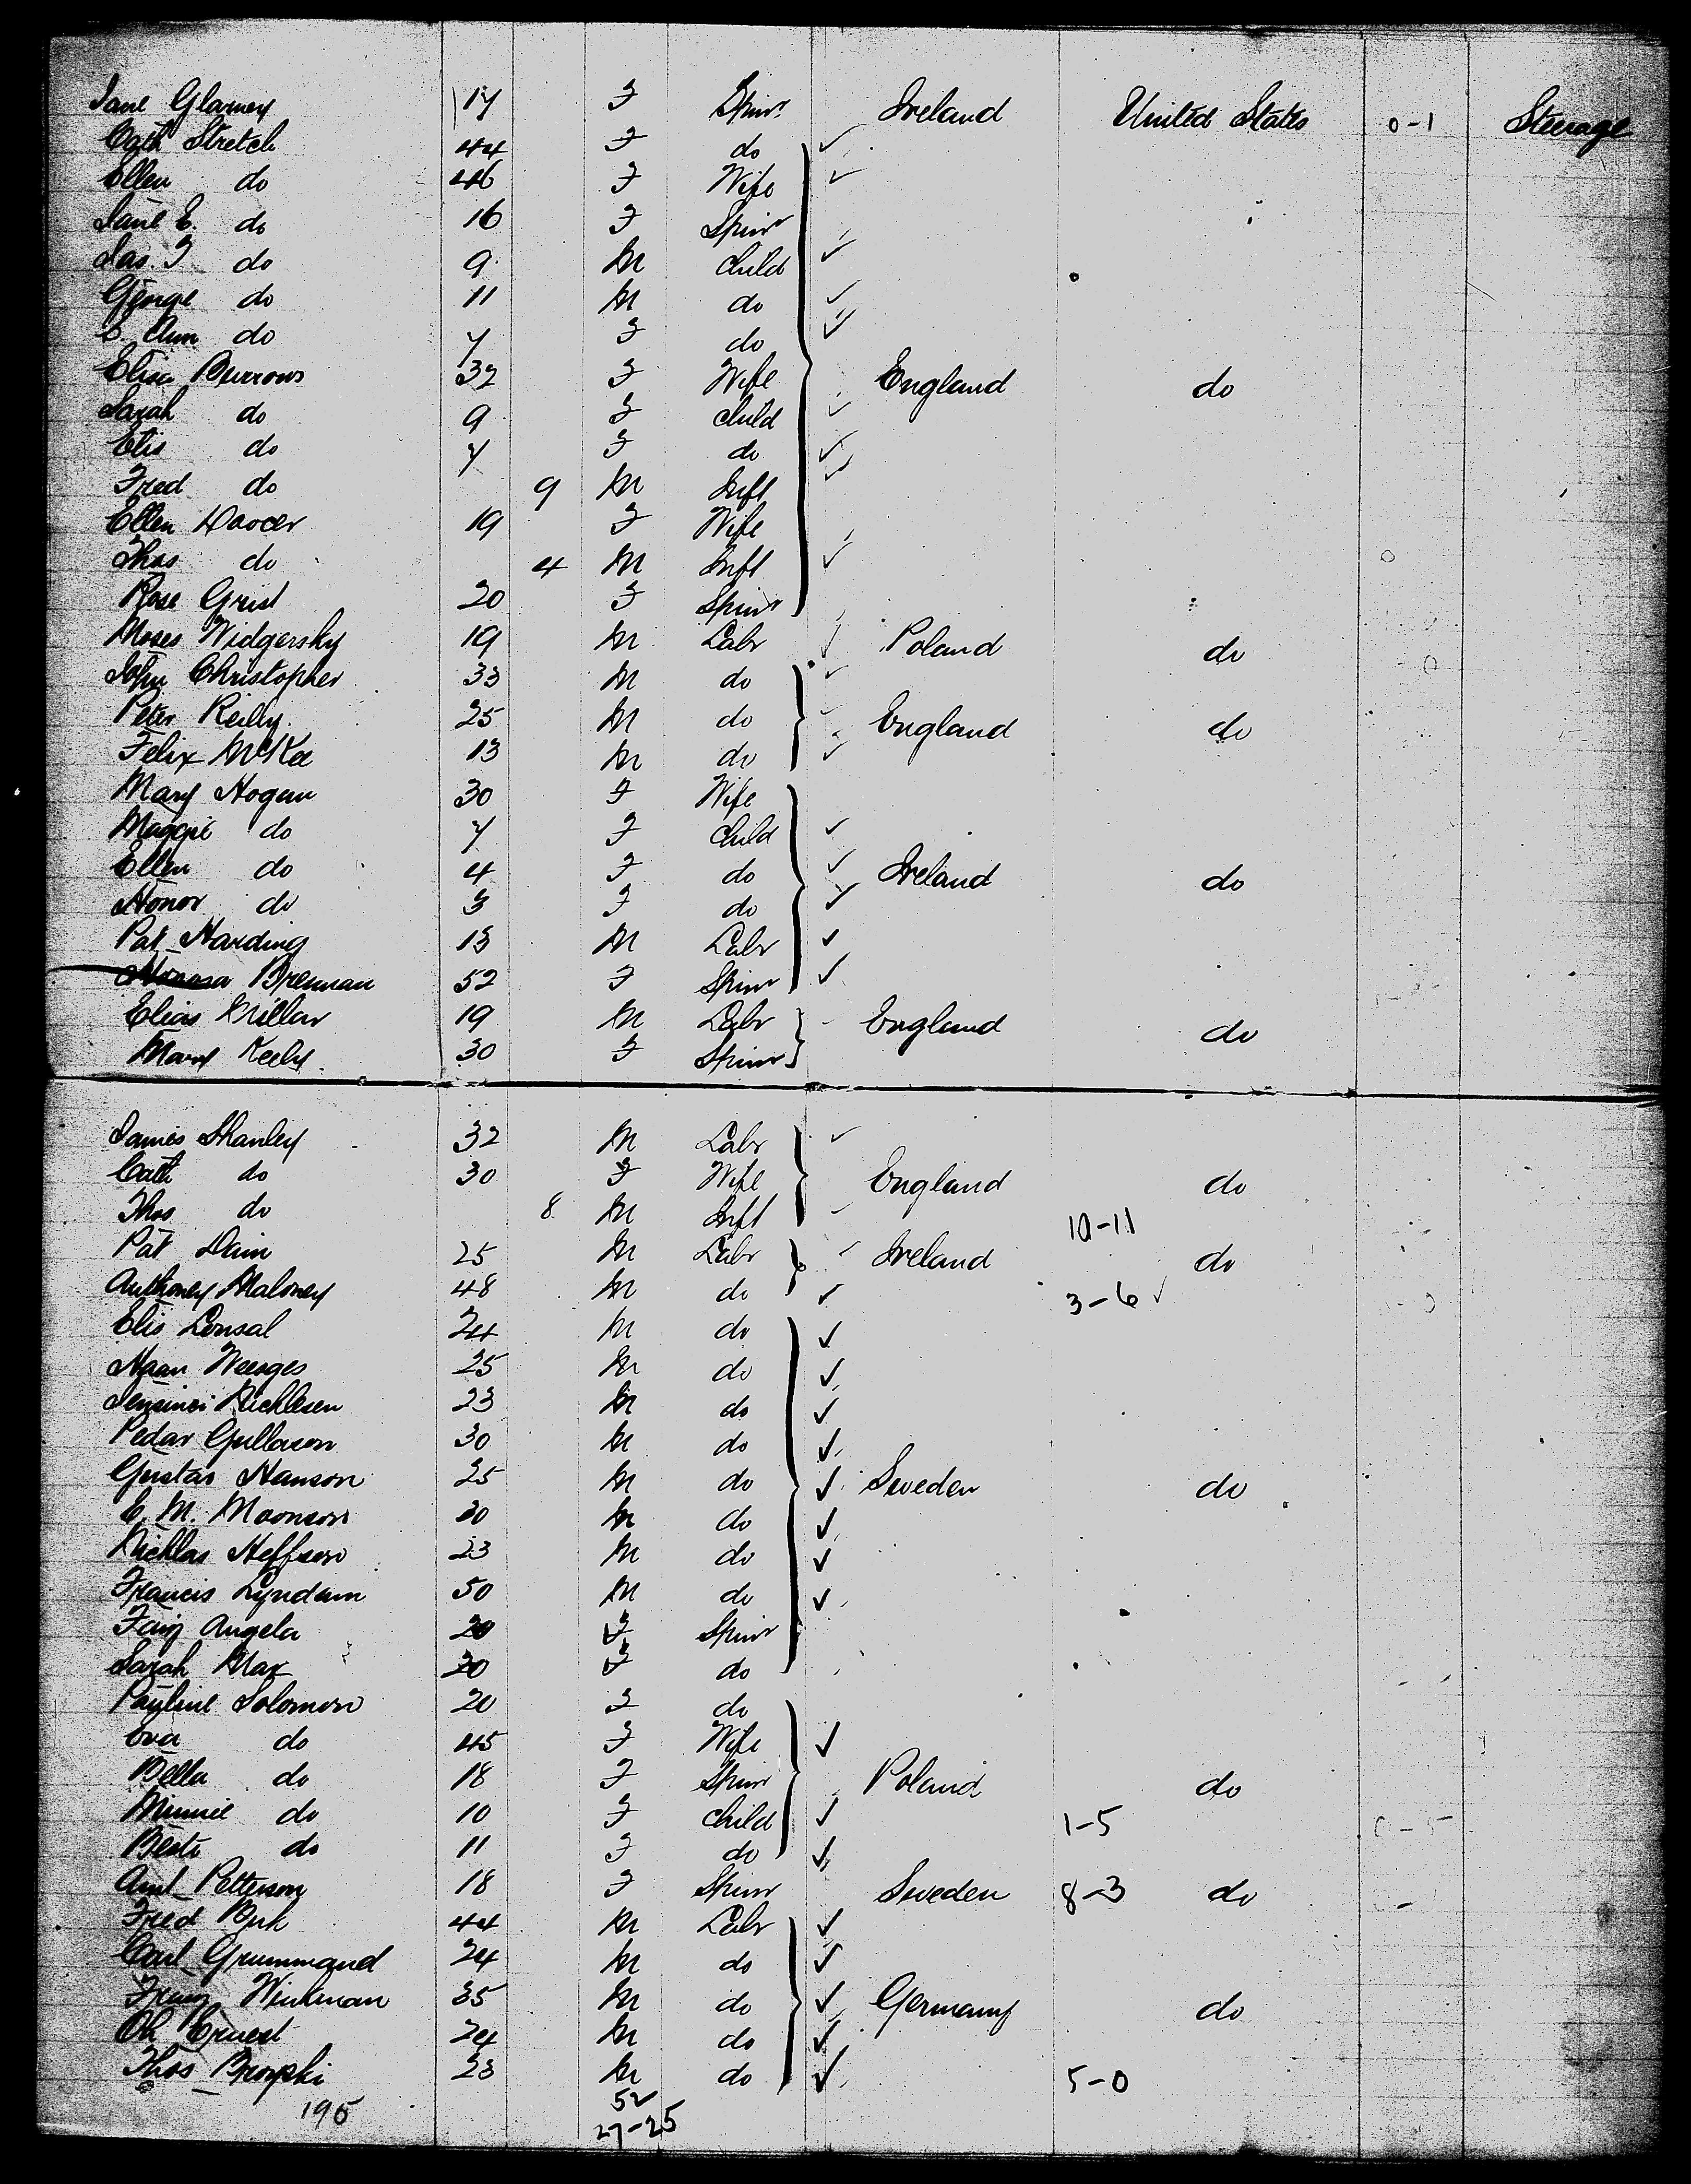 Jane Glarney 17 F Spinr Ireland United States 0-1 Steerage
Cath Stretch 44 F do
Ellen do 46 F Wife
Jane E. do 16 F Spinr
Jas. F do 9 M Child
George do 11 M do
E. Ann do 7 F do
Eliza Burrows 32 F Wife England do
Sarah do 9 F Child
Elis do 7 F do
Fred do 9 M Inft
Ellen 19 F Wife
Thos do 4 M Inft
Rose Grist 20 F Spinr
Moses Widgersky 19 M Labr Poland do
John Christopher 33 M do
Peter Reilly 25 M do England do
Felix McKee 13 M do
Mary Hogan 30 F Wife
Maggie do 7 F Child
Ellen do 4 F do Ireland do
Honor do 3 F do
Pat Harding 13 M Labr
Honora Brennan 52 F Spinr
Elias Millar 19 M Labr England do
Mary Keely 30 F Spinr
James Shanley 32 M Labr
Cath do 30 F Wife England do
Thos do 8 M Inft 10-11
Pat Dain 25 M Labr Ireland do
Anthoney Maloney 48 M do 3-6
Elis Lonsal 24 M do
25 M do
23 M do
Pedar Gullason 30 M do
Gustas Hanson 25 M do Sweden do
E. M. Moonson 30 M do
Nicklas Heffson 23 M do
Francis Lyndam 50 M do
Angela 20 F Spinr
Sarah Max 30 F do
Pauline Solomon 20 F do
Eva do 45 F Wife
Bella do 18 F Spinr Poland do
Minnie do 10 F Child 1-5 0-5
do 11 F do
Petterson 18 F Spinr Sweden 8-3 do
Fred 44 M Labr
Carl Grummand 24 M do
Franz Winkman 35 M do Germany do
Ernest 24 M do
Thos 23 M do 5-0
195 52
27-25